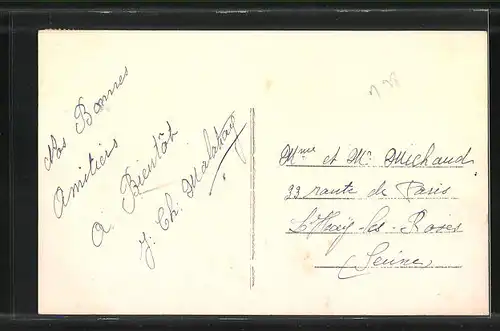 Nos Bonnes
Amitiers
à Bientôt
J. Ch. Malakay
Mme et Mr Michaud
33 route de Paris
L'Hay-les-Roses
(Seine)